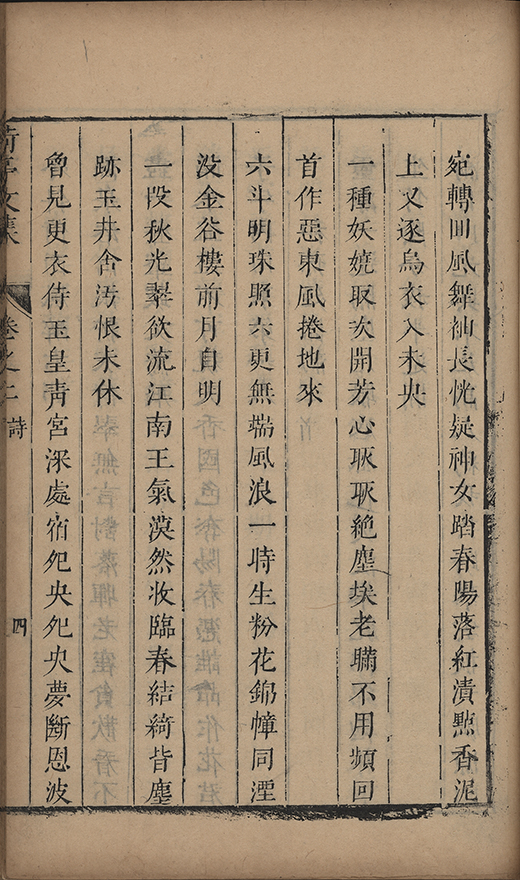 宛轉回風舞袖長恍疑神女踏春陽落紅漬㸃香泥
上又逐烏衣入未央
一種妖嬈取次開芳心耿耿絶塵埃老蟎不用頻回
首作惡東風捲地來
六斗明珠照六更無端風浪一時生粉花錦幛同湮
没金谷樓前月自明
一段秋光翠欲流江南王氣漠然收臨春結綺皆塵
跡玉井含汚恨未休
曾見更衣侍玉皇靑宮深處宿夗央夗央夢斷恩波
文集
卷之二
詩
四